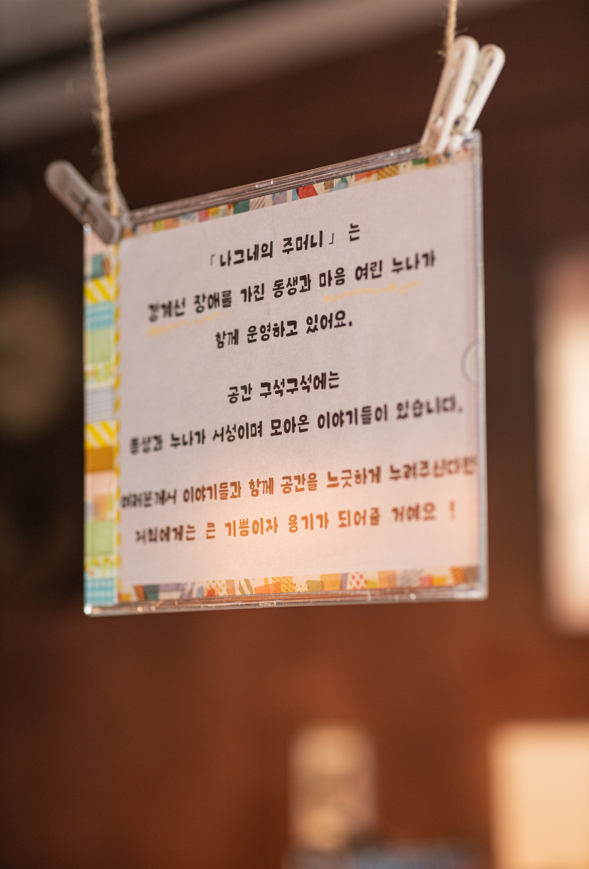 「나그네의 주머니」는
경계선 장애를 가진 동생과 마음 여린 누나가
함께 운영하고 있어요.
공간 구석구석에는
동생과 누나가 서성이며 모아온 이야기들이 있습니다.
여러분께서 이야기들과 함께 공간을 느긋하게 누려주신다면
저희에게는 큰 기쁨이자 용기가 되어줄 거예요 !